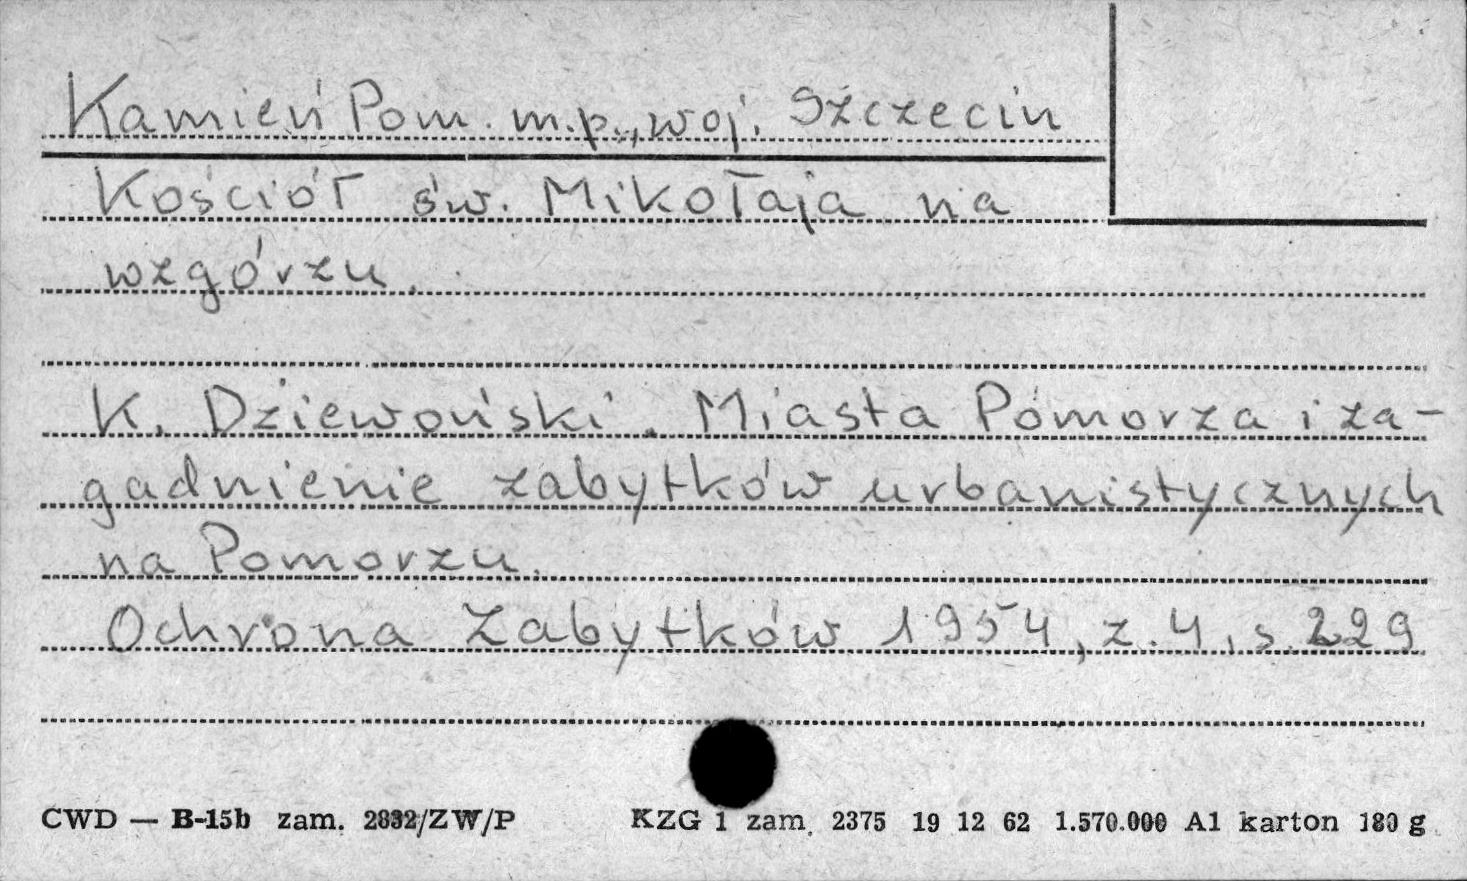 Kamień Pom. m.p., woj. Szczecin
Kościół św. Mikołaja na
wzgórzu.
K. Dziewoński. Miasta Pomorza i za-
gadnienie zabytków urbanistycznych
na Pomorzu.
Ochrona Zabytków 1954, z. 4, s. 229
CWD — B-15b zam. 2832/ZW/P KZG 1 zam. 2375 19 12 62 1.570.000 A1 karton 180 g